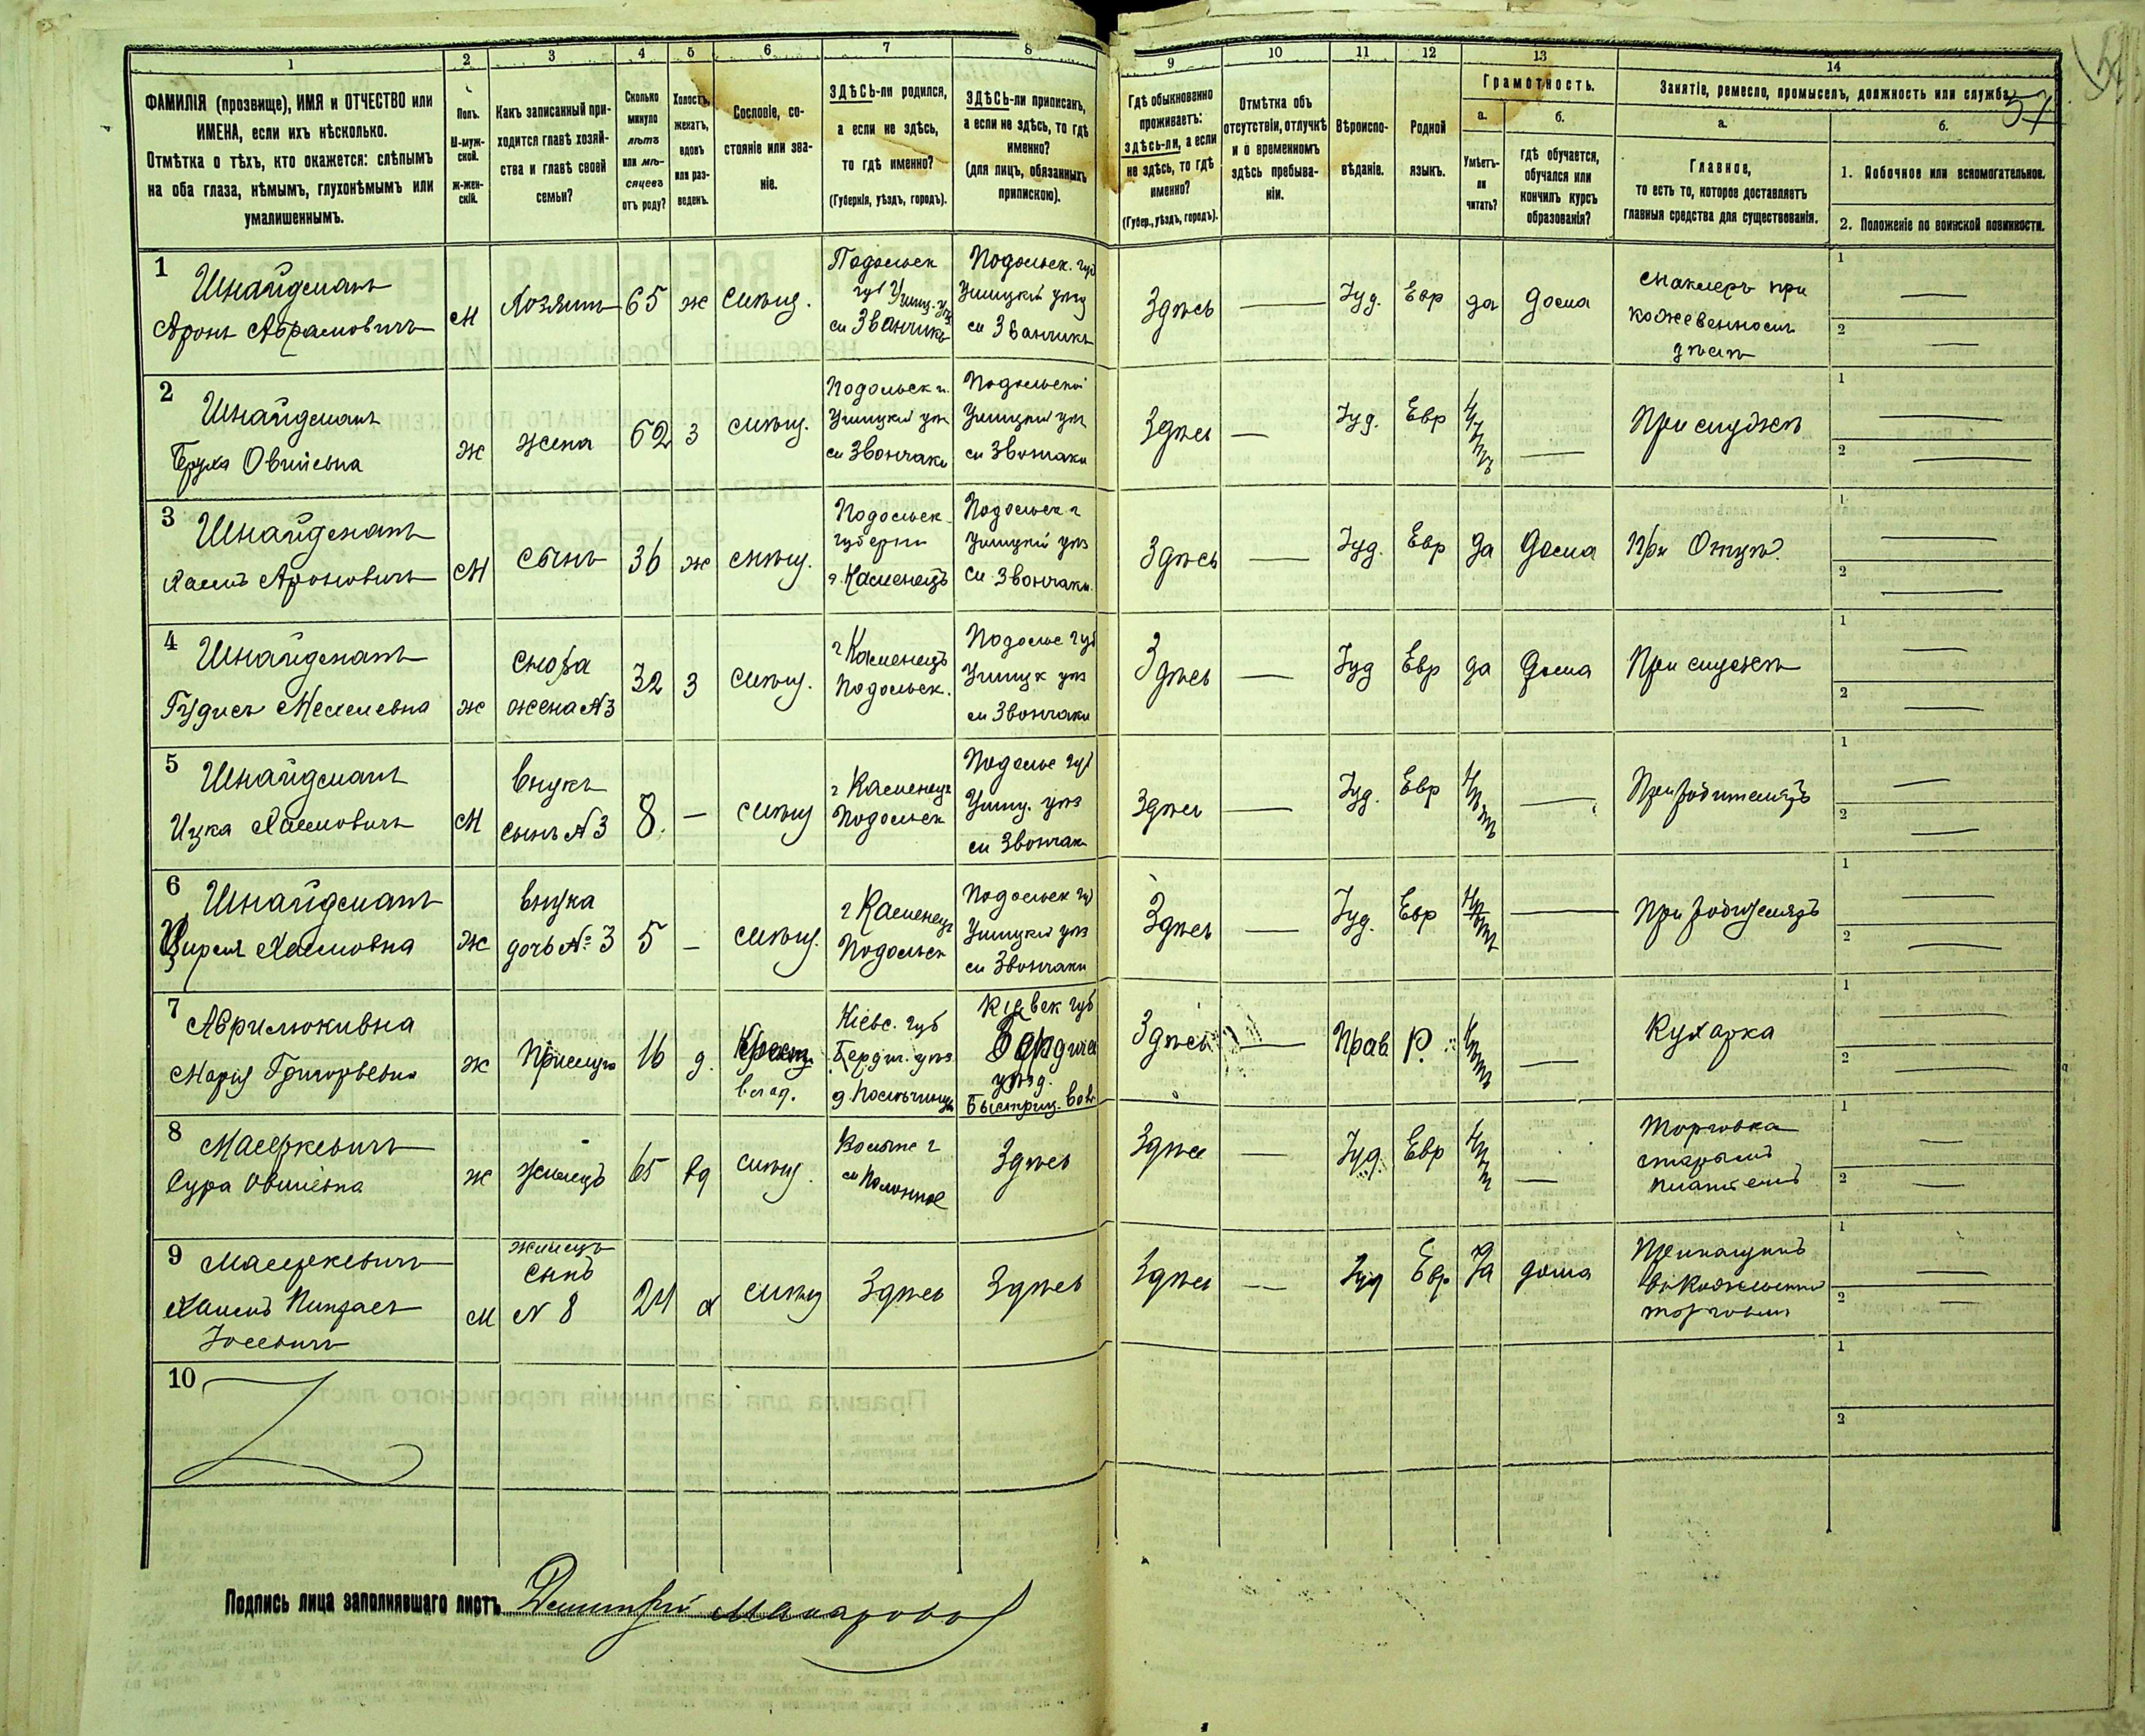 1
2
3
4
5
6
7
8
9
10
11
12
13
14
ФАМИЛІЯ (прозвище), ИМЯ и ОТЧЕСТВО или
ИМЕНА, если ихъ нѣсколько.
Отмѣтка о тѣхъ, кто окажется: слѣпымъ
на оба глаза, нѣмымъ, глухонѣмымъ или
умалишеннымъ.
Полъ.
М-муж-
ской.
ж-жен-
скій.
Какъ записанный при-
ходится главѣ хозяй-
ства и главѣ своей
семьи?
Сколько
минуло
лѣтъ
или мѣ-
сяцевъ
отъ роду?
Холостъ,
женатъ,
вдовъ
или раз-
веденъ.
Сословіе, со-
стояніе или зва-
ніе.
ЗДѢСЬ-ли родился,
а если не здѣсь,
то гдѣ именно?
(Губернія, уѣздъ, городъ).
ЗДѢСЬ-ли приписанъ,
а если не здѣсь, то гдѣ
именно?
(для лицъ, обязанныхъ
припискою).
Гдѣ обыкновенно
проживаетъ:
здѣсь-ли, а если
не здѣсь, то гдѣ
именно?
(Губер., уѣздъ, городъ).
Отмѣтка объ
отсутствіи, отлучкѣ
и о временномъ
здѣсь пребыва-
ніи.
Вѣроиспо-
вѣданіе.
Родной
языкъ.
Грамотность.
а.
Умѣетъ-
ли
читать?
б.
гдѣ обучается,
обучался или
кончилъ курсъ
образованія?
Занятіе, ремесло, промыселъ, должность или служба.
57
а.
Главное,
то есть то, которое доставляетъ
главныя средства для существованія.
б.
1. Побочное или вспомогательное.
2. Положеніе по воинской повинности.
1
Шнайдманъ
Аронъ Абрамовичъ
М
Хозяинъ
65
ж
мѣщ.
Подольск
губ Ушиц. уѣз
м Званчикъ
Подольск. губ
Ушицкій уѣзд
м Званчикъ
Здѣсь
Іуд.
Евр
да
дома
маклеръ при
кожевенномъ
дѣлѣ
1
2
2
Шнайдманъ
Бруха Овшіевна
ж
жена
62
З
мѣщ.
Подольск г.
Ушицкій уѣз
м Звончаки
Подольской
Ушицкій уѣз
м Звончаки
Здѣсь
Іуд.
Евр
нѣтъ
При мужѣ
1
2
3
Шнайдманъ
Хаимъ Ароновичъ
М
сынъ
36
ж
мѣщ.
Подольск
губерни
г. Каменецъ
Подольск г
Ушицкій уѣз
м Звончаки
Здѣсь
Іуд.
Евр
да
дома
При Отцѣ.
1
2
4
Шнайдманъ
ж
сноха
жена № 3
32
З
мѣщ.
г Каменецъ
Подольск.
Подольс губ
Ушицк уѣз
м Звончаки
Здѣсь
Іуд
Евр
да
дома
При мужѣ
1
2
5
Шнайдманъ
Ицка Хаимовичъ
М
внукъ
сынъ № 3
8.
мѣщ
г Каменец
Подольск
Подольс губ
Ушиц. уѣз
м Звончак
Здѣсь
Іуд.
Евр
нѣтъ
При родителяхъ
1
2
6
Шнайдманъ
Хаимовна
ж
внука
дочь № 3
5
мѣщ.
г Каменец
Подольск
Подольск губ
Ушицкій уѣз
м Звончаки
Здѣсь
Іуд.
Евр
нѣтъ
При родителяхъ
1
2
7
Марія Григорьевна
ж
Прислуга
16
д.
Крест.
Кіевс. губ
Бердич. уѣз.
губ
Бердичев
уѣзд.
Быстриц. вол.
Здѣсь
Прав
Р.
нѣтъ
Кухарка
1
2
8
Сура Овшіевна
ж
жилецъ
65
вд
мѣщ.
Волынс г
м Полонное
Здѣсь
Здѣсь
Іуд.
Евр
нѣтъ
Торговка
старымъ
платьемъ
1
2
9
Хаимъ Пинхас
Іосевичъ
М
жилецъ
сынъ
№ 8
24
х
мѣщ
Здѣсь
Здѣсь
Здѣсь
Іуд
Евр
да
дома
Прикащикъ
въ Кожевенной
торговли
1
2
10
1
2
Подпись лица заполнявшаго листъ Димитрій Макаровъ